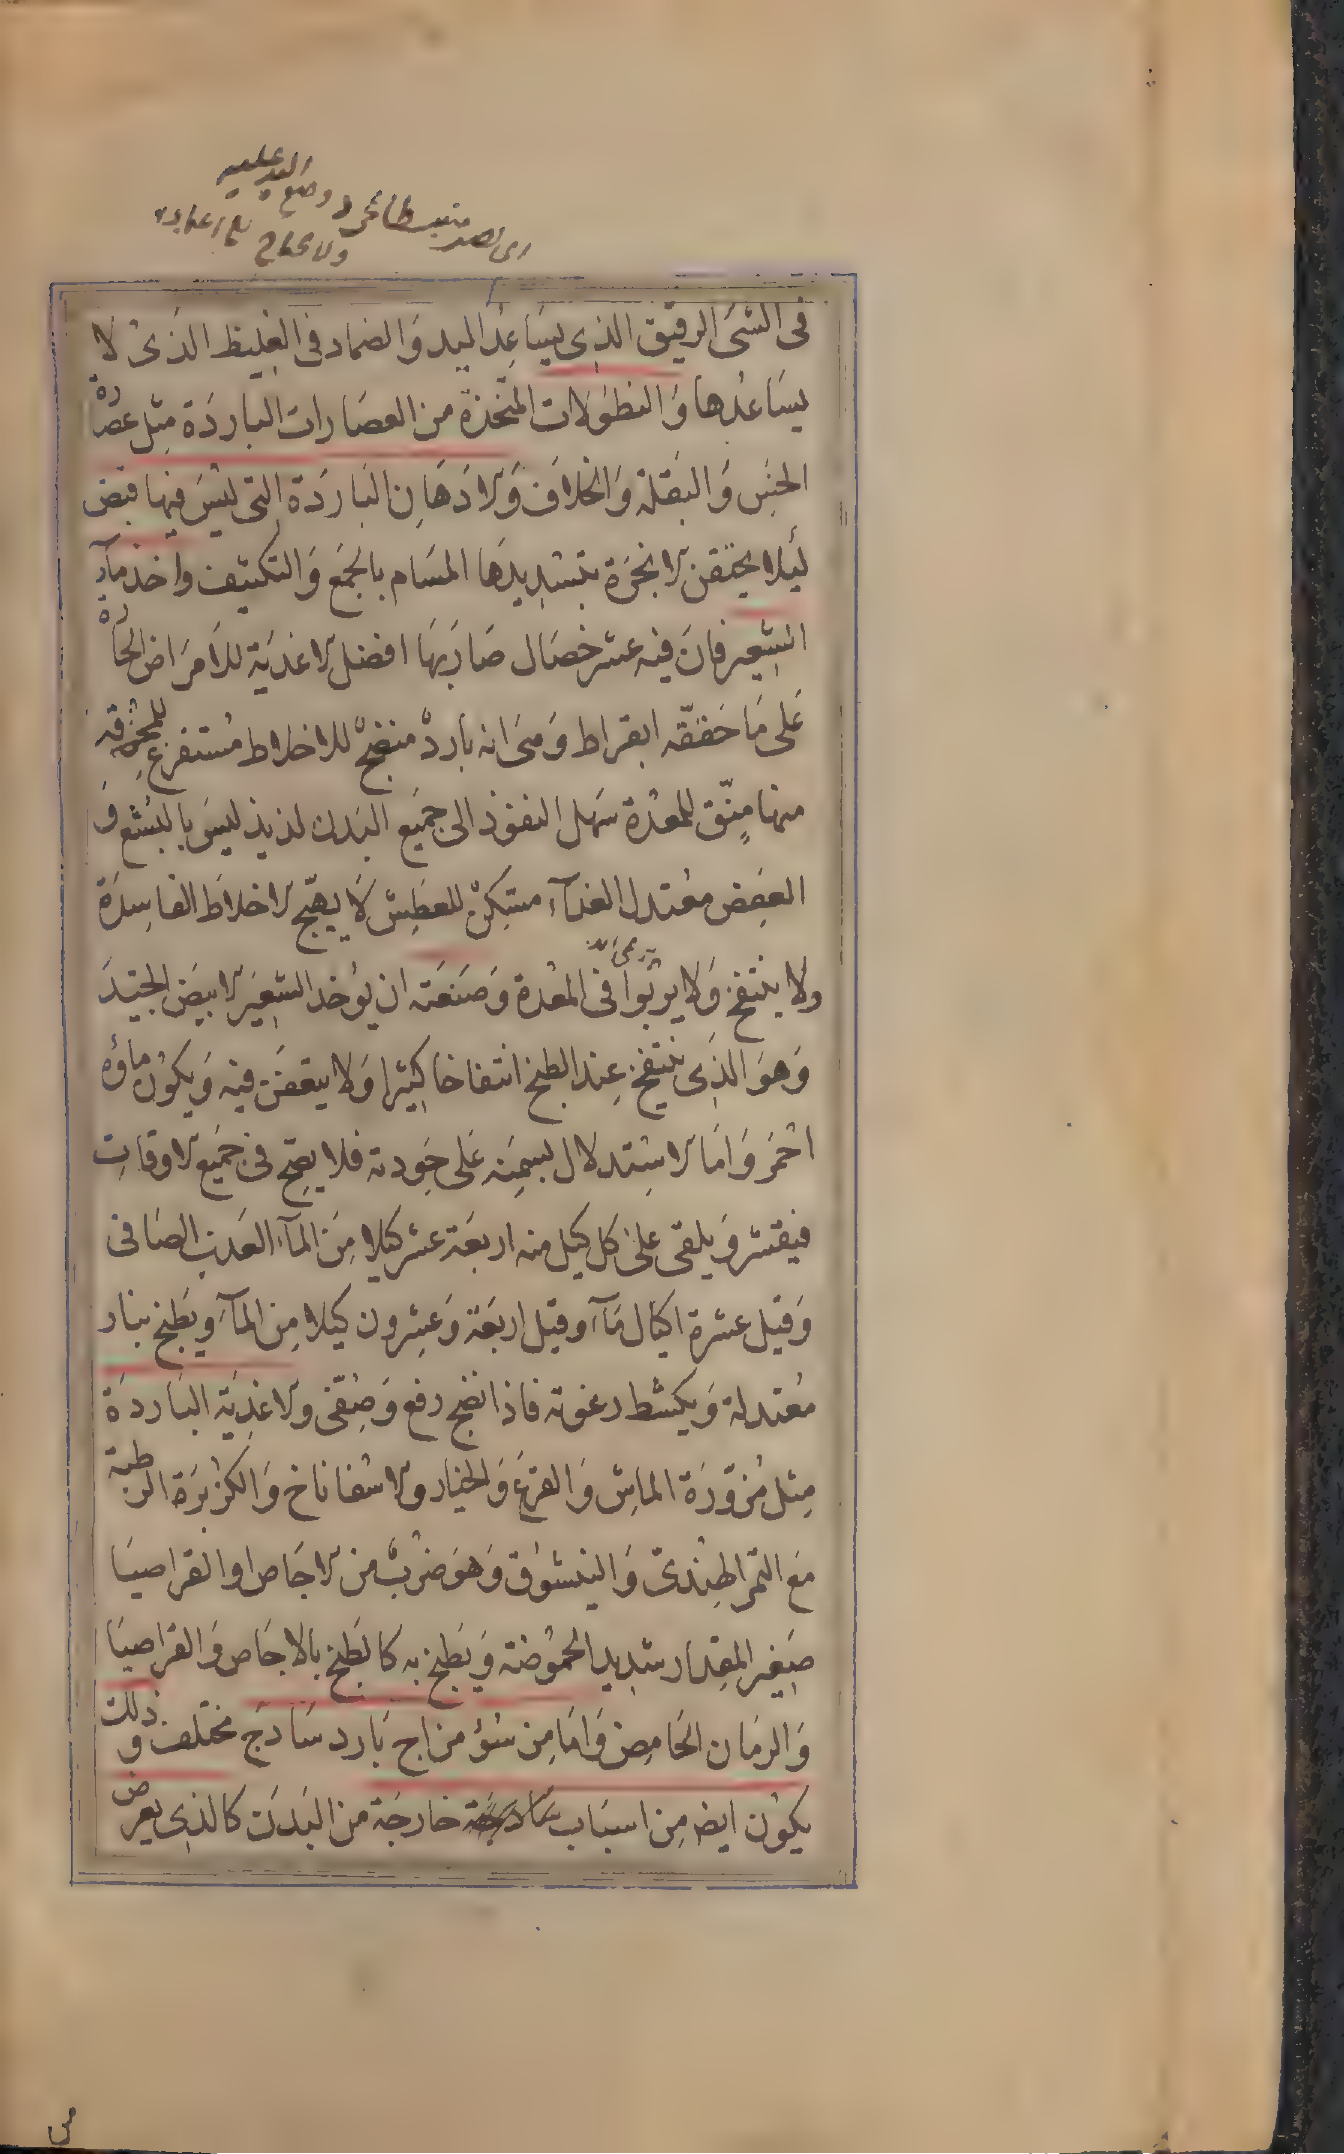 اى يصير منبسطا بمجرد وضع اليد عليه
ولا يحتاج الى
فى الشى الرقيق الذى يساعد اليد والضماد فى الغليظ الذى لا
يساعدها والنطولات المتخذة من العصارات الباردة مثل عصارة
الخس والبقلة والخلاف والادهان الباردة التى ليس فيها قبض
ليلا يحتقن الابخرة بتسديدها المسام بالجمع والتكثيف واخذ ماء
الشعير فان فيه عشر خصال صار بها افضل الاغذية للامراض الحارة
على ما حققه ابقراط وهى انه بارد منضج للاخلاط مستفرغ للمحترقة
منها منق للمعدة سهل النفوذ الى جميع البدن لذيذ ليس بالبشع و
العفص معتدل الغذآء مسكن للعطش لا يهيج الاخلاط الفاسدة
ولا ينتفخ ولا يربوا فى المعدة وصنعته ان يوخذ الشعير الابيض الجيد
وهو الذى ينتفخ عند الطبخ انتفاخا كثيرا ولا يتعفن فيه ويكون ماؤه
احمر واما الاستدلال بسمنه على جودته فلا يصح فى جميع الاوقات
فيقشر ويلقى على كل كيل منه اربعة عشر كيلا من المآء العذب الصافى
وقيل عشرة اكيال مآء وقيل اربعة وعشرون كيلا من المآء ويطبخ بنار
معتدلة ويكشط رغوته فاذا نضج رفع وصفى والاغذية الباردة
مثل مزورة الماش والقرع والخيار والاسفاناخ والكزبرة الرطبة
مع التمر الهندى والنيشوق وهو ضرب من الاجاص او القراصيا
صغير المقدار شديد الحموضة ويطبخ به كما يطبخ بالاجاص والقراصيا
والرمان الحامض واما من سؤ مزاج بارد ساذج مختلف وذلك
يكون ايض من اسباب خارجة من البدن كالذى يعرض
من